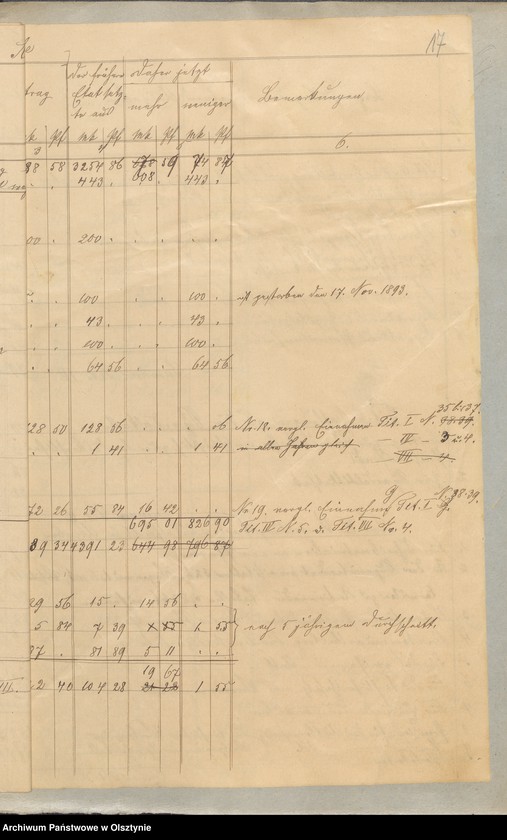 17
Der früher Daher jetzt
trag Etatsetz-
te aus mehr weniger Bemerkungen
Pf Mk Pf Mk Pf Mk Pf
6.
88 58 3254 86 59 74 87
443 . 608 . 443 .
00 . 200 . . . . .
. . 600 . . . 600 . ist gestorben den 17. Nov. 1893.
. . 43 . . . 43 .
. . 600 . . . 600 .
. . 64 56 . . 64 56
35 b. 37.
28 50 128 56 . . . 06 No 18. vergl. Einnahme Tit. I N. 38.39.
. . 1 41 . . 1 41 in allen Jahren gleich — IV — 3 u. 4.
— VII — 4.
N. 38-39.
72 26 55 84 16 42 . . No 19. vergl. Einnahme Tit. I
695 01 826 90 Tit. IV N. 5. u. Tit. VII No. 4.
39 34 4391 23 644 98 796 87
29 56 15 . 14 56 . .
5 84 7 39 x 55 1 55 nach 5 jährigem Durchschnitt.
87 . 81 89 5 11 . .
19 67
III. 2 40 104 28 21 22 1 55
Archiwum Państwowe w Olsztynie